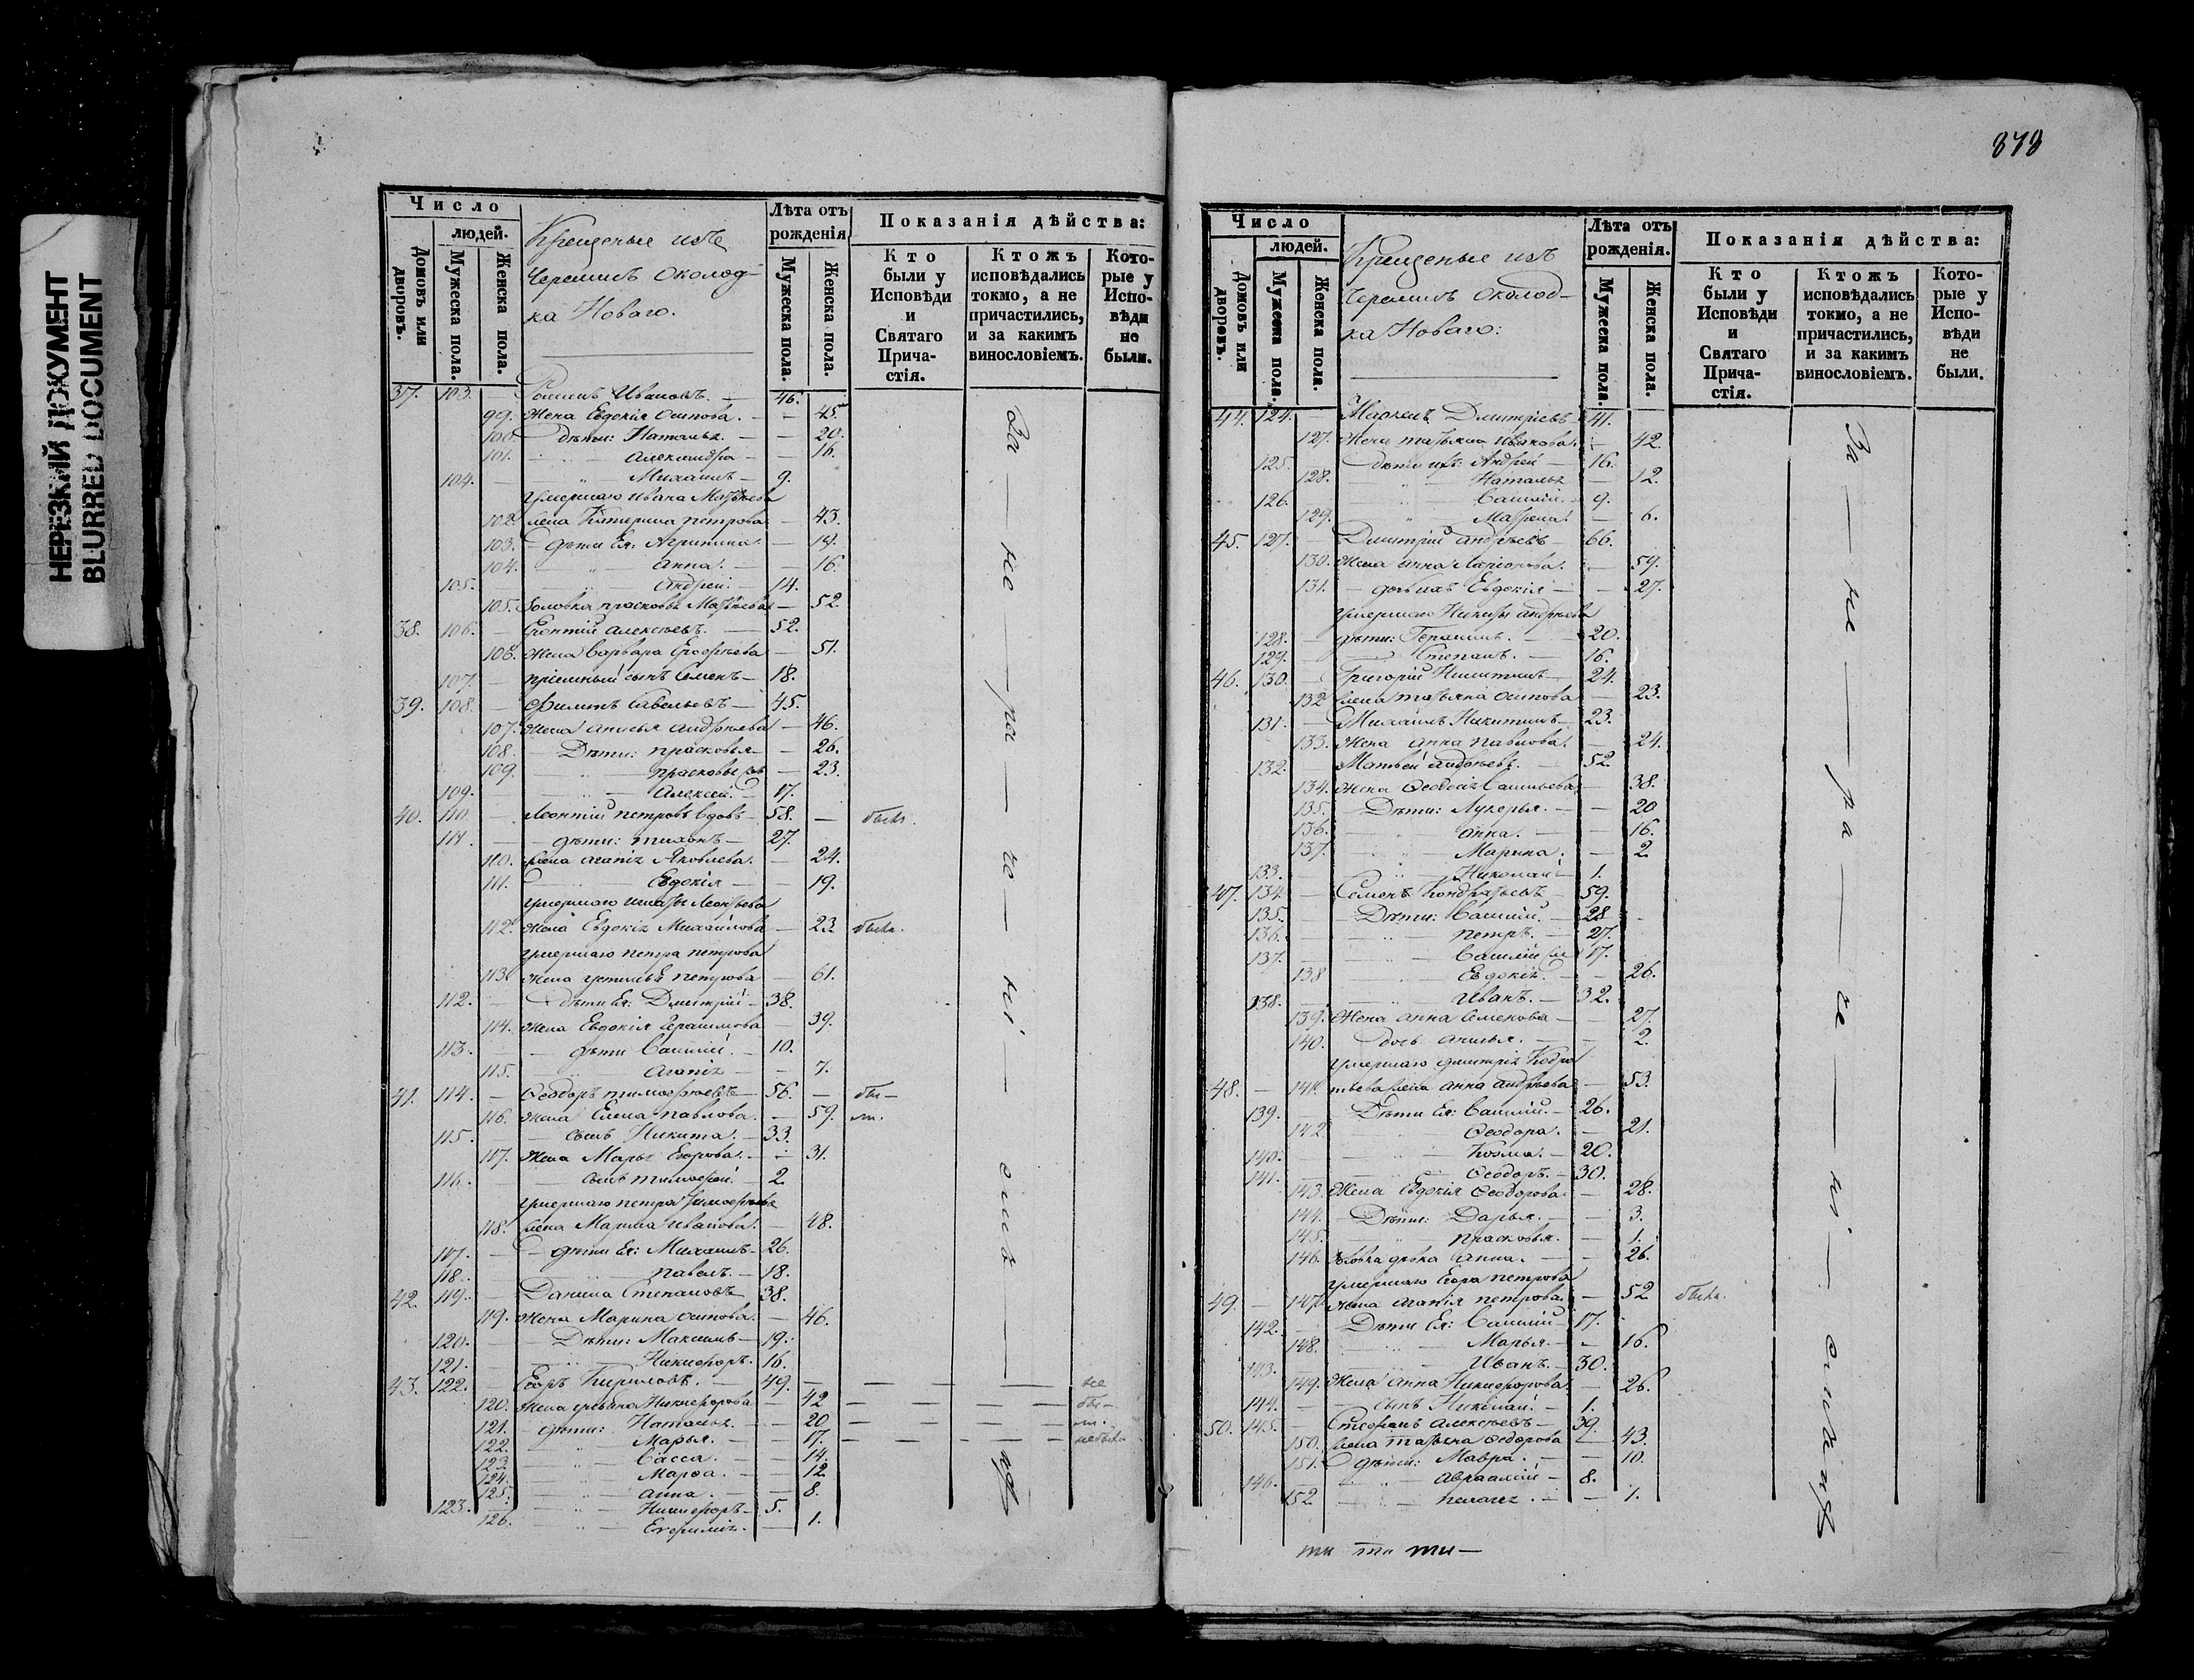 НЕРЕЗКИЙ ДОКУМЕНТ
BLURRED DOCUMENT
Число
людей.
Домовъ или дворовъ.
Мужеска пола.
Женска пола.
Крещеные изъ
Черемисъ Околод-
ка Новаго.
Лѣта отъ рожденія
Мужеска пола.
Женска пола.
Показанія дѣйства:
Кто были у Исповѣди и Святаго Прича-стія.
Ктожъ исповѣдались токмо, а не причастились, и за какимъ винословіемъ.
Кото-рые у Испо-вѣди не были.
37. 103. Ивановъ. 46.
99. Жена Евдокія Осипова. 45.
100. дѣти: Наталья. 20.
101. Александра 16.
104. Михаилъ 9.
Умершаго Ивана Матвѣева
102. жена Катерина Петрова 43.
103. дѣти Ея: 19.
104. Анна. 16.
105. Андрей. 14.
105. Золовка Прасковья Матвѣева 52.
38. 106. Алексѣевъ. 52.
106. Жена Варвара 51.
107. пріемный сынъ Семенъ 18.
39. 108. Филипъ Савельевъ 45.
107. Жена Анисья Андреева 46.
108. Дѣти: Прасковья 26.
109. Прасковья 23.
109. Алексей. 17.
40. 110. Леонтій Петровъ вдовъ 58. была.
111. дѣти: Тихонъ 27.
110. жена Агапія Яковлева. 24.
111. Евдокія 19.
умершаго Леонтьева
112. Жена Евдокія Михайлова 23. была.
умершаго Петра Петрова
113. Жена Устинья Петрова 61.
112. дѣти Ея: Дмитрій 38.
114. Жена Евдокія Герасимова 39.
113. дѣти Василій. 10.
115. Агапія 7.
41. 114. Феодоръ Тимофѣевъ 56. бы-
116. Жена Елена Павлова. 59. ли.
115. сынъ Никита. 33.
117. Жена Марья Егорова. 31.
116. сынъ Тимофей. 2.
Умершаго Петра Тимофѣева
118. жена Марина Иванова. 48.
117. дѣти Ея: Михаилъ 26.
118. Павелъ. 18.
42. 119. Данила Степановъ 38.
119. Жена Марина Осипова. 46.
120. Дѣти: Максимъ 19.
121. Никифоръ. 16.
43. 122. Егоръ Кириловъ. 49. не
120. Жена Ульяна Никифорова 42 бы-
121. дѣти: Наталья 20 ли.
122. Марья. 17. небыла
123. Васса. 14.
124. Марфа. 12
125. Анна. 8.
123. Никифоръ 5.
126. Ефимія. 1.
За — не — ра — че — ні — емъ
878
Число
людей.
Домовъ или дворовъ.
Мужеска пола.
Женска пола.
Крещеные изъ
Черемисъ Околод-
ка Новаго:
Лѣта отъ рожденія.
Мужеска пола.
Женска пола.
Показанія дѣйства:
Кто были у Исповѣди и Святаго Прича-стія.
Ктожъ исповѣдались токмо, а не причастились, и за какимъ винословіемъ.
Кото-рые у Испо-вѣди не были.
44. 124. Маркелъ Дмитріевъ 41.
127. Жена Татьяна Иванова. 42.
125. дѣти ихъ: Андрей 16.
128. Наталья 12.
126. Василій. 9.
129. Матрена. 6.
45. 127. Дмитрій Андреевъ 66.
130. Жена Анна Ларіонова. 59.
131. дочь ихъ Евдокія 27.
умершаго Никиты Андреева
128. дѣти: Герасимъ. 20.
129. Степанъ. 16.
46. 130. Григорій Никитинъ 24.
132. жена Татьяна Осипова 23.
131. Михаилъ Никитинъ 23.
133. Жена Анна Павлова. 24.
132. Матвей Андреевъ. 52.
134. Жена Феодосія Васильева 38.
135. Дѣти: Лукерья. 20
136. Анна. 16.
137. Марина. 2.
133. Николай 1.
47. 134. Семенъ Кондратьевъ 59.
135. Дѣти: Василій. 28
136. Петръ. 27.
137. Василій 17.
138 Евдокія. 26.
138. Иванъ. 32.
139. Жена Анна Семенова 27.
140. дочь Анисья. 2.
Умершаго Дмитрія Кодра
48. 141. тьева жена Анна Андреева 53.
139. Дѣти Ея: Василій. 26.
142. Феодора. 21.
140. Козма. 20.
141. Феодоръ. 30.
143. Жена Евдокія Феодорова. 28.
144. Дѣти: Дарья. 3.
145. Прасковья. 1.
146. дѣвка Анна. 26.
Умершаго Егора Петрова
49. 147. жена Агапія Петрова. 52 была.
142. Дѣти Ея: Василій 17.
148. Марья. 16.
143. Иванъ. 30.
149. Жена Анна Никифорова. 26.
144. сынъ Николай. 1.
50. 145. Стефанъ Алексѣевъ 39.
150. жена Татьяна Федорова 43.
151. дѣти: Мавра. 10.
146. Авраамій 8.
152 Пелагея. 1.
За — не — ра — че — ні — емъ